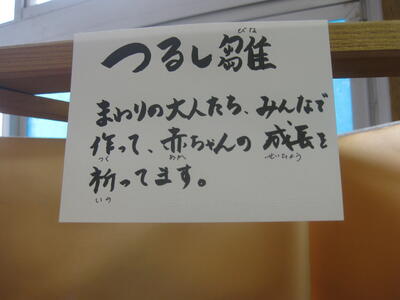 つるし雛
びな
まわりの大人たち、みんなで
作って、赤ちゃんの成長を
つく あか せいちょう
祈ってます。
いの